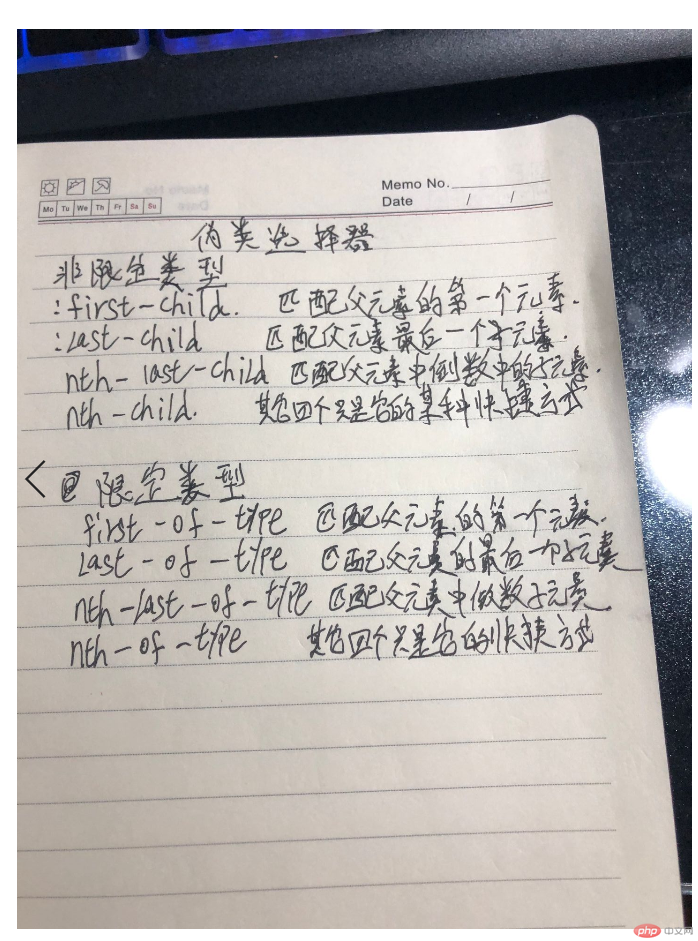 Memo No.
Mo Tu We Th Fr Sa Su
Date / /
伪类选择器
非限定类型
:first-child. 匹配父元素的第一个元素.
:last-child 匹配父元素最后一个子元素.
nth-last-child 匹配父元素中倒数中的子元素.
nth-child. 其它四个只是它的某种快捷方式
限定类型
first-of-type 匹配父元素的第一个元素.
last-of-type 匹配父元素的最后一个子元素
nth-last-of-type 匹配父元素中倒数子元素.
nth-of-type 其它四个只是它的快捷方式
php 中文网